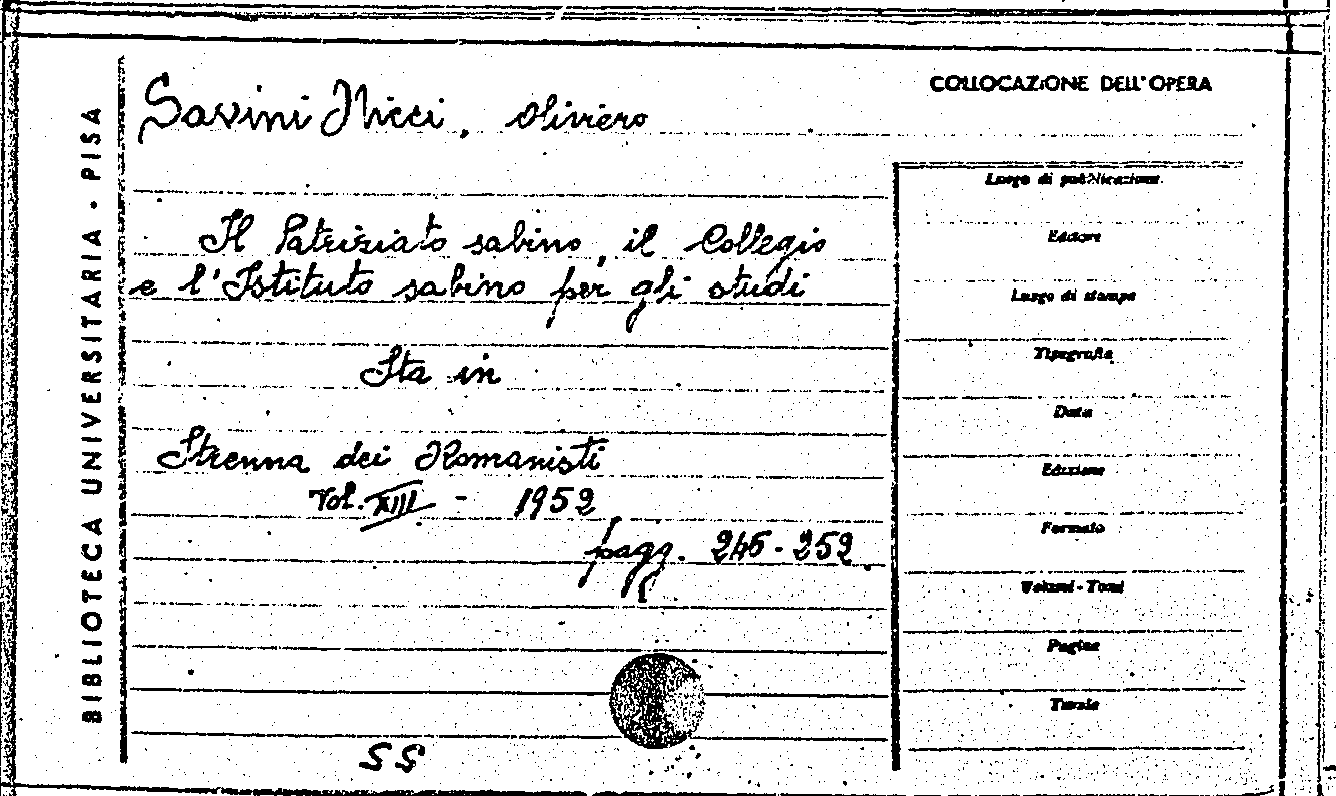 COLLOCAZIONE DELL'OPERA
Savini Nicci, Oliviero
Il Patriziato sabino, il Collegio
e l'Istituto sabino per gli studi
Sta in
Strenna dei Romanisti
Vol. XIII - 1952
pagg. 245-252.
SS
BIBLIOTECA UNIVERSITARIA - PISA
Luogo di pubblicazione
Editore
Luogo di stampa
Tipografia
Data
Edizione
Formato
Volumi - Tomi
Pagine
Tavole